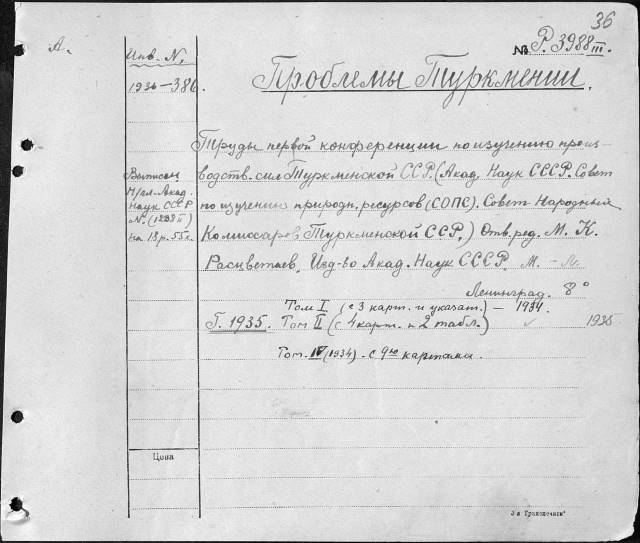 36
А.
Инв. N.
№ Р. 3988 III.
1936—386.
Проблемы Туркмении.
Труды первой конференции по изучению произ-
водств. сил Туркменской ССР. (Акад. Наук СССР. Совет
по изучению природн. ресурсов (СОПС). Совет Народных
Комиссаров Туркменской ССР.) Отв. ред. М. К.
Расцветаев. Изд-во Акад. Наук СССР. М. – Л.
Ленинград. 8°
Выписан
Н/гл. Акад.
Наук СССР
на 18 р. 55 к.
Том I (с 3 карт. и указат.) — 1934.
Г. 1935. Том II (с 4 карт. и 2 табл.) ✓ 1935
Том IV (1934). с 9ю картами.
Цена